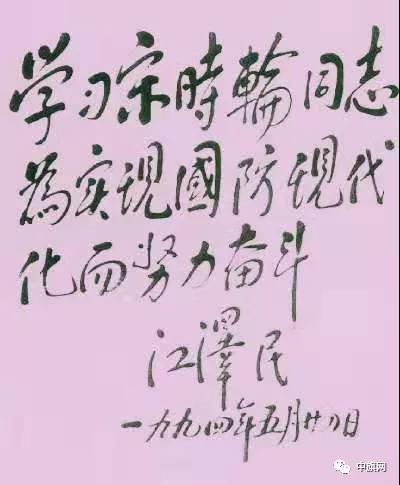 学习宋時輪同志
為实現國防現代
化而努力奋斗
江澤民
一九九四年五月廿日
中旗网